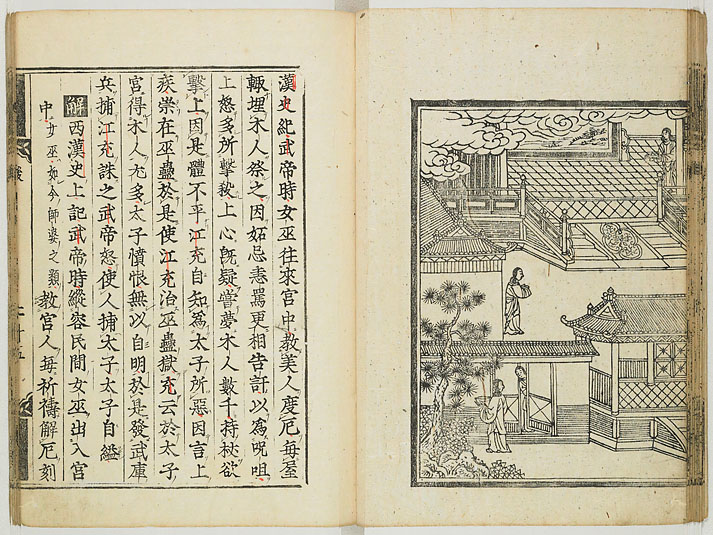 漢史紀武帝時女巫往來宮中教美人度厄每屋
輙埋木人祭之因妬忌恚罵更相告訐以為呪咀
上怒多所擊殺上心既疑嘗夢木人數千持杖欲
擊上因是體不平江充自知為太子所惡因言上
疾祟在巫蠱於是使江充治巫蠱獄充云於太子
宮得木人尤多太子憤恨無以自明於是發武庫
兵捕江充誅之武帝怒使人捕太子太子自縊
解西漢史上記武帝時縱容民間女巫出入宮
中女巫如今師婆之類教宮人每祈禱解厄刻